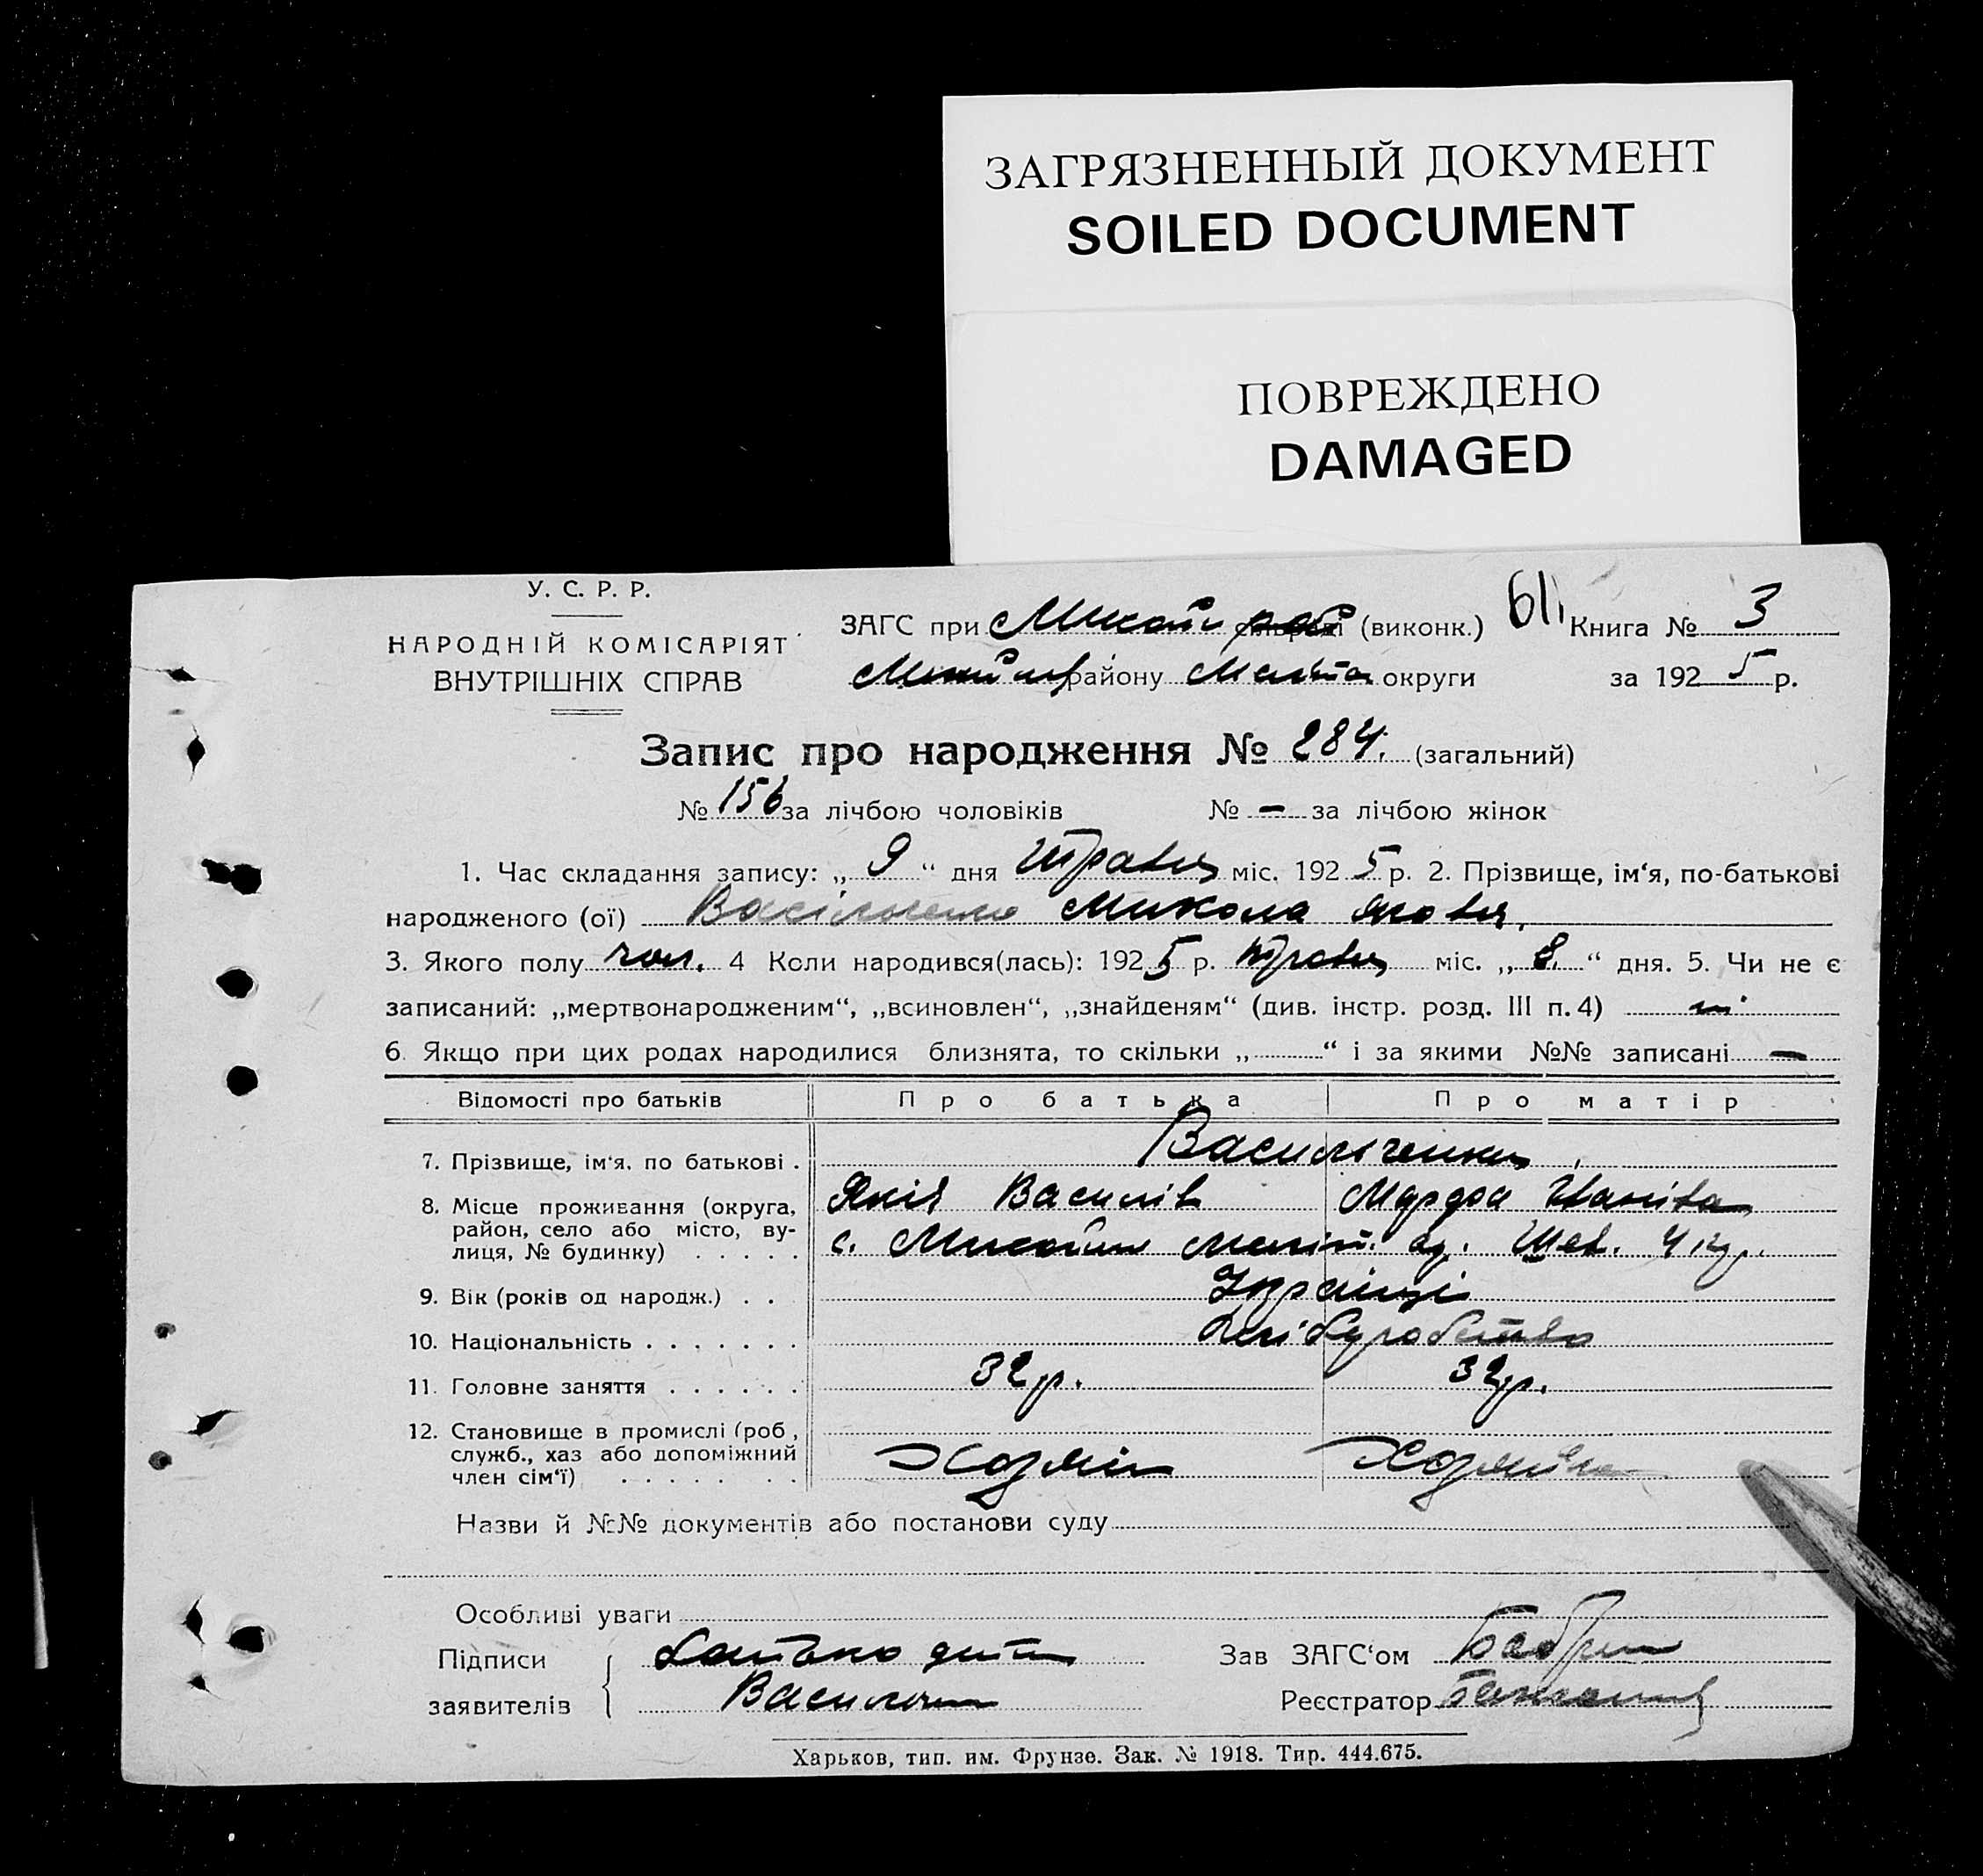 ЗАГРЯЗНЕННЫЙ ДОКУМЕНТ
SOILED DOCUMENT
ПОВРЕЖДЕНО
DAMAGED
У. С. Р. Р.
НАРОДНІЙ КОМІСАРІЯТ
ВНУТРІШНІХ СПРАВ
ЗАГС при рай (виконк.) 611 Книга № 3
району округи за 1925 р.
Запис про народження № 284. (загальний)
№ 156 за лічбою чоловіків № — за лічбою жінок
1. Час складання запису: „ 9 “ дня травня міс. 1925 р. 2. Прізвище, ім‘я, по-батькові
народженого (ої) Васільченко Микола Яковл.
3. Якого полу чол. 4 Коли народився(лась): 1925 р. травня міс. „ 8. “ дня. 5. Чи не є
записаний: „мертвонародженим“, „всиновлен“, „знайденям“ (див. інстр. розд. III п. 4) ні
6. Якщо при цих родах народилися близнята, то скільки „ “ і за якими №№ записані —
Відомості про батьків Про батька Про матір
7. Прізвище, ім‘я, по батькові . Васильченки
8. Місце проживання (округа, Яків Василів Марфа Іванівна
район, село або місто, ву-
лиця, № будинку) . . . . . с. Шев. 4
9. Вік (років од народж.) . . Українці
10. Національність . . . . . . . Хліборобство
11. Головне заняття . . . . . . 32 р. 32 р.
12. Становище в промислі (роб.,
служб., хаз або допоміжний Хазяїн Хазяйка
член сім‘ї) . . . . . . . .
Назви й №№ документів або постанови суду
Особливі уваги
Підписи батько дити Зав ЗАГС‘ом
заявителів Васильчен Реєстратор
Харьков, тип. им. Фрунзе. Зак. № 1918. Тир. 444.675.